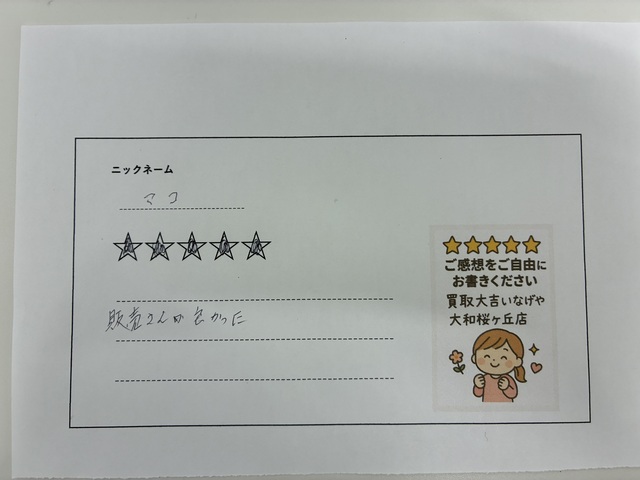 ニックネーム
マコ
販売さんが良かった
ご感想をご自由に
お書きください
買取大吉いなげや
大和桜ヶ丘店